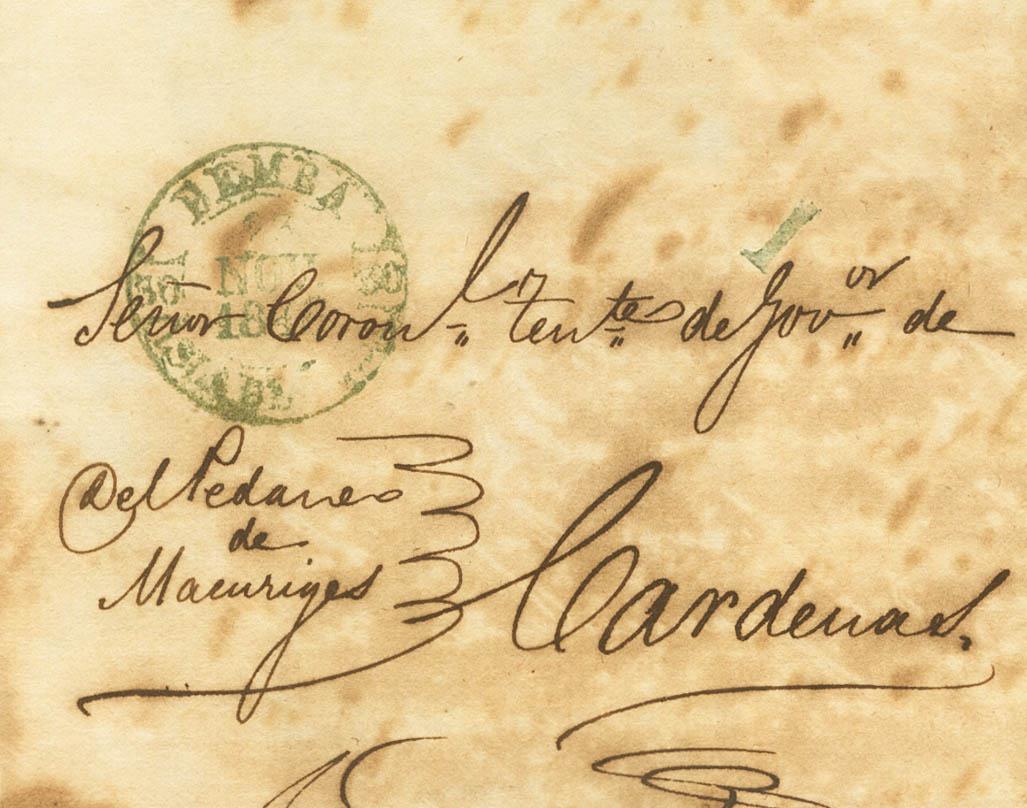 BEMBA
NOV
Señor Coron.l y ten.te de Gov.or de
Del Pedaneo
de
Macuriges
Cardenas.
1